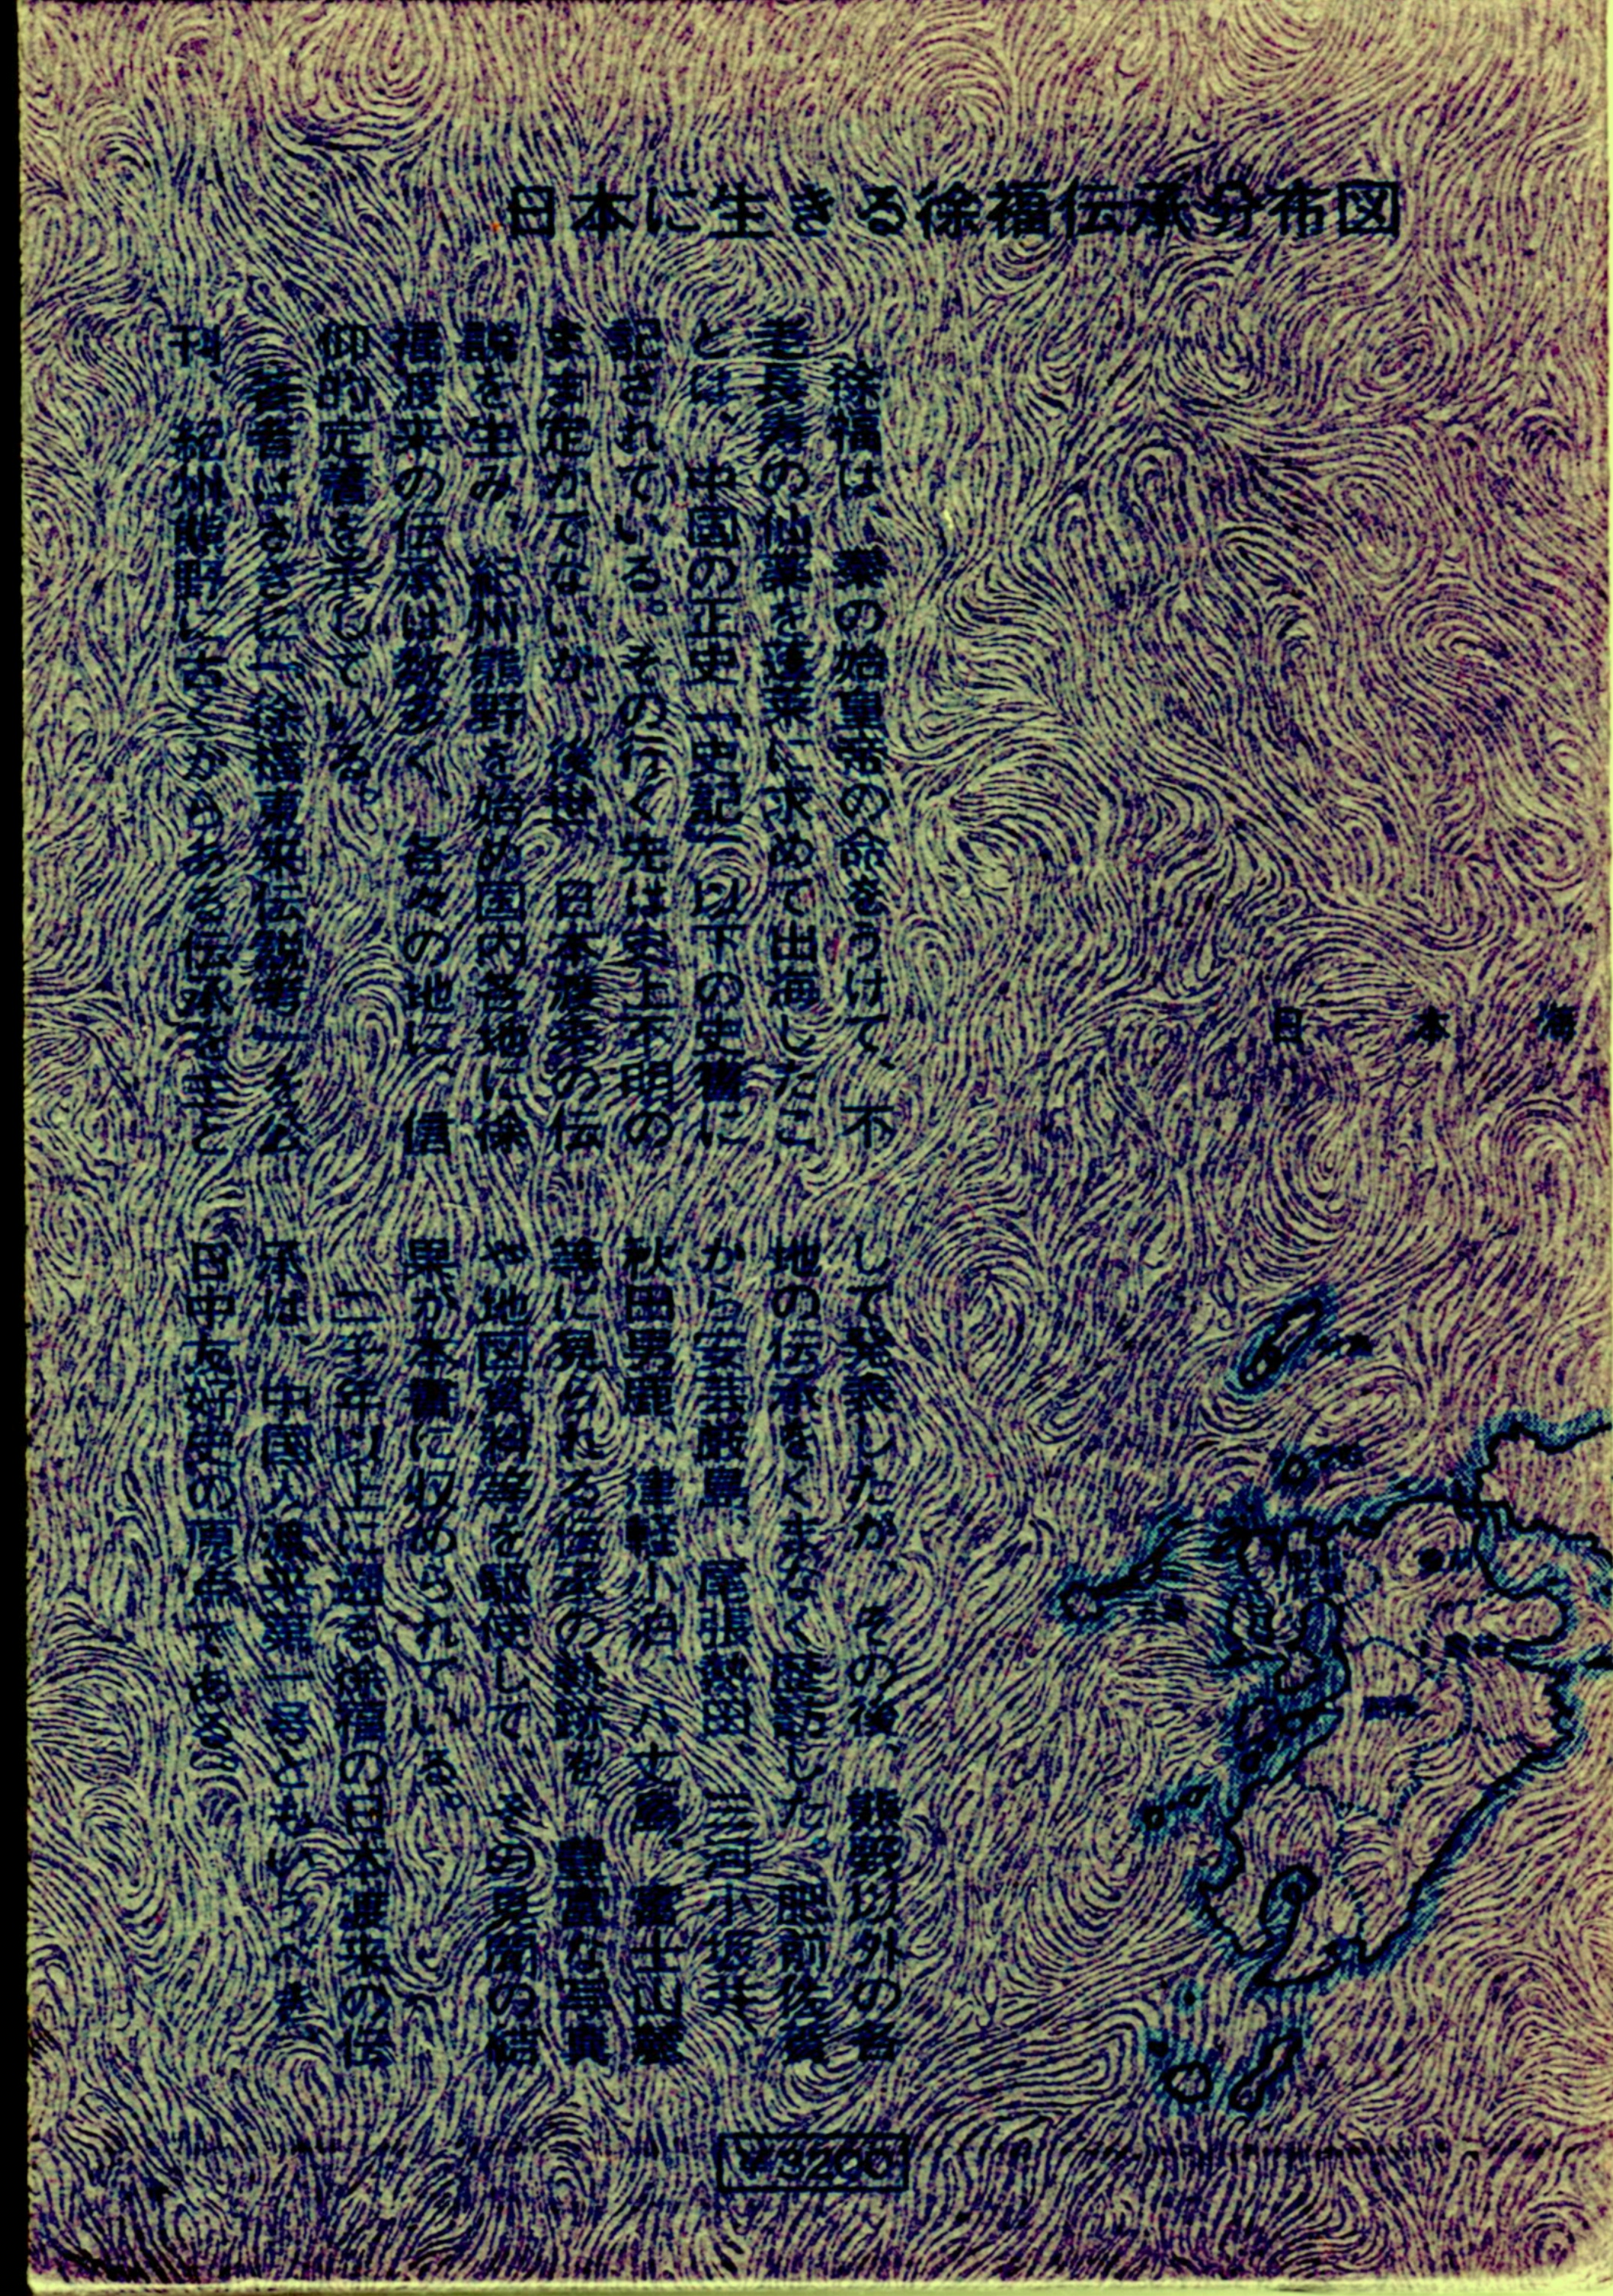 日本に生きる徐福伝承分布図
徐福は、秦の始皇帝の命をうけて、不
老長寿の仙薬を蓬莱に求めて出海したこ
とは、中国の正史「史記」以下の史書に
記されている。その行く先は史上不明の
まま定かでないが、後世、日本渡来の伝
説を生み、紀州熊野を始め国内各地に徐
福渡来の伝承は数多く、各々の地に、信
仰的定着を示している。
著者はさきに「徐福東来伝説考」を公
刊、紀州熊野に古くからある伝承を主と
して発表したが、その後、熊野以外の各
地の伝承をくまなく探訪した。肥前佐賀
から安芸厳島、尾張熱田、三河小坂井、
秋田男鹿、津軽小泊、八丈島、富士山麓
等に見られる伝承の跡を、豊富な写真
や地図資料等を駆使して、その見聞の結
果が本書に収められている。
二千年以上に遡る徐福の日本渡来の伝
承は、中国人渡来第一号ともいうべき、
日中友好史の原点である。
日本海
¥3200